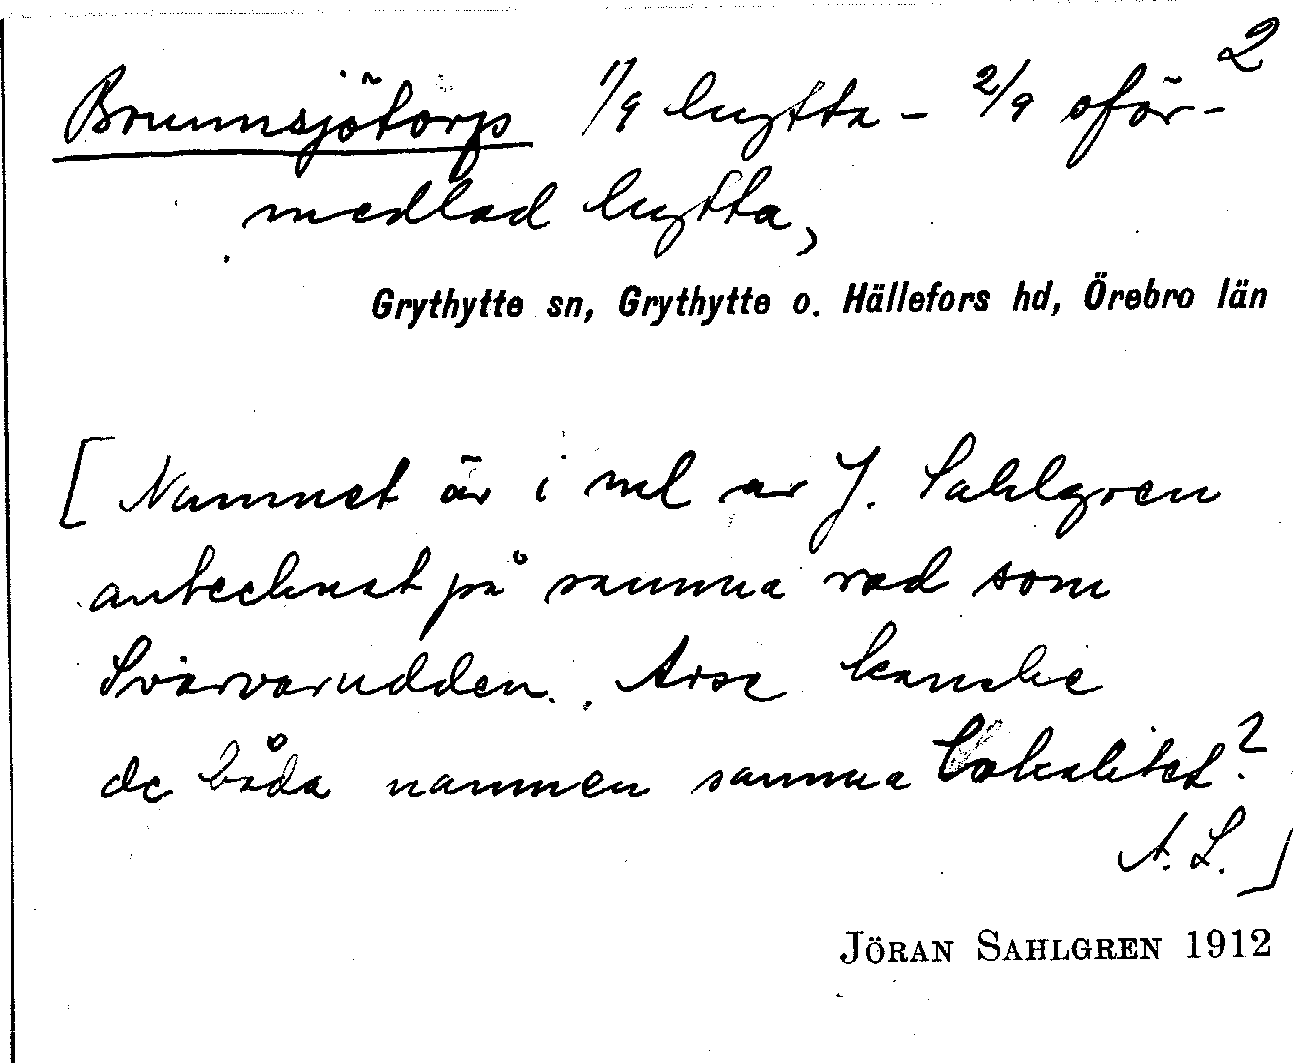 2
Brunnsjötorp 1/9 hytta – 2/9 oför-
medlad hytta,
Grythytte sn, Grythytte o. Hällefors hd, Örebro län
[Namnet är i ml av J. Sahlgren
antecknat på samma rad som
Svarvarudden. Avse kanske
de båda namnen samma lokalitet?
A. L.]
JÖRAN SAHLGREN 1912